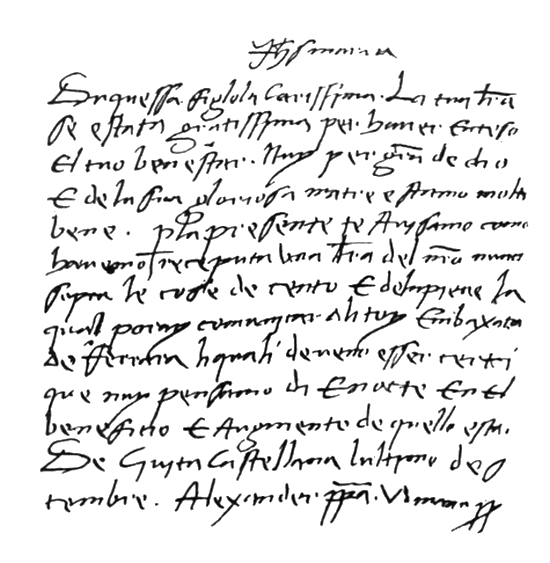 Jhs maria
Duquessa figlola Carissima. La tua l̄ra
se estata gratissima per haver Enteso
El tuo ben estar. Nuy per gr̄a de dio
E de la sua gloriosa matre estamo molto
bene. p la presente te Avisamo como
havemo receputa una l̄ra del n̄ro nunci
sopra le cose de cento E de la pieve la
qual poray comunicar. Ali toy Embaxata
de ferrara liquali deveno esser certi
que nuy pensamo di E nocte En El
beneficio E Augmento de quello esta.
De Civita Castellana lultimo de
tembre. Alexander. pp̄a. VI manu pp